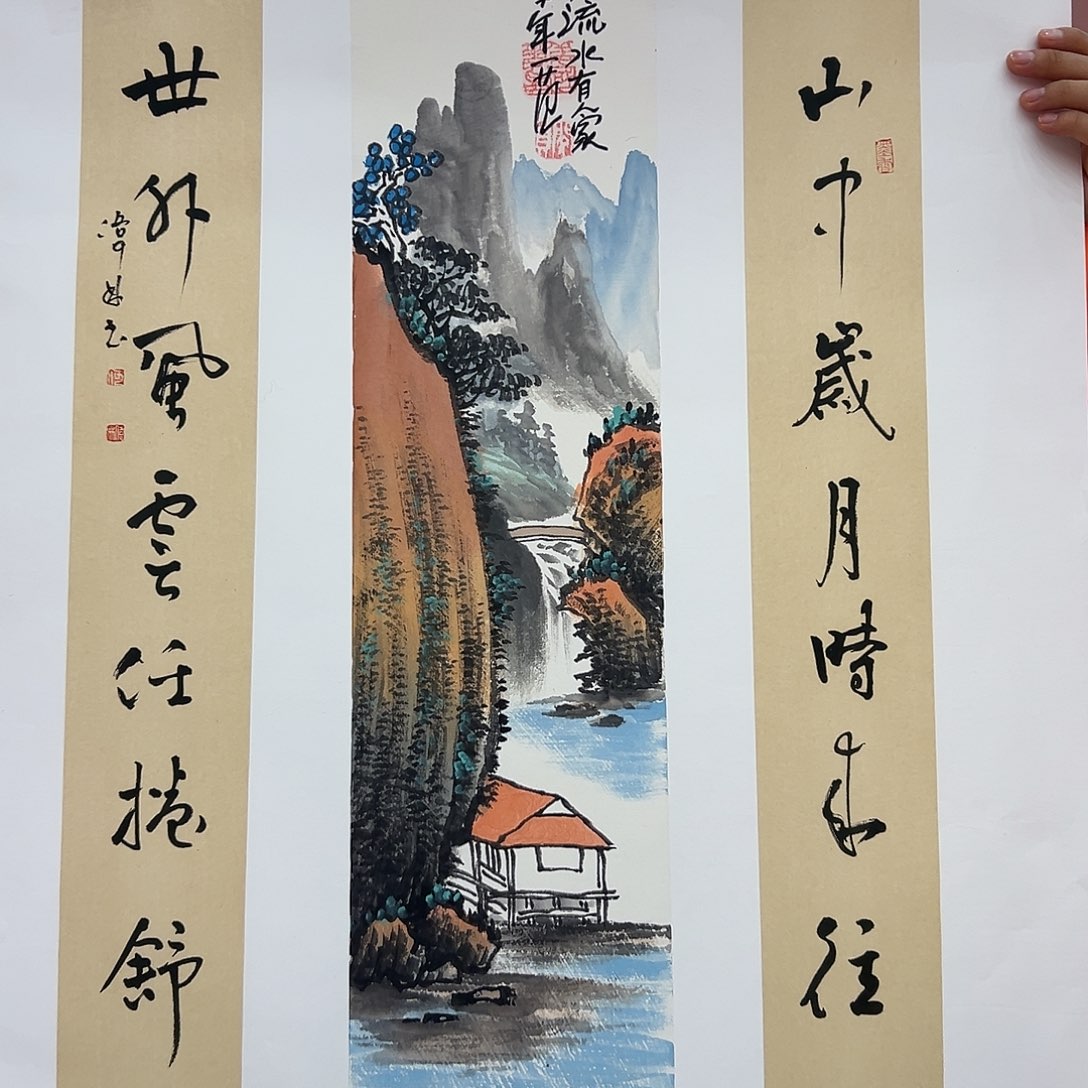 山中歲月時來往
流水有家
年
世外風雲任捲舒